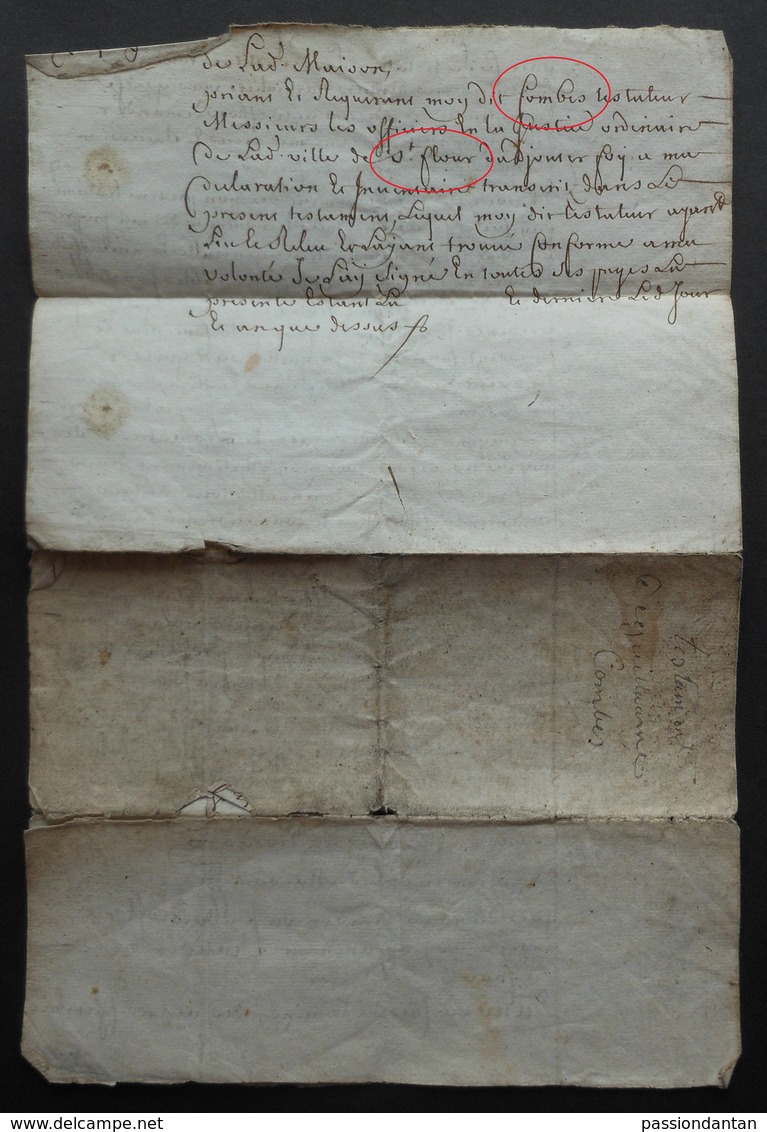 de Lad. Maison,
priant et Requerant moy dit Combes testateur
Messieurs les officiers En la Justice ordinaire
de Lad. ville de St. flour d'adjouter foy a ma
declaration Et Inventaire transcrit dans Le
present testament, Lequel moy dit testateur ayant
Leu Et Releu Et Layant trouvé Conforme a ma
volonté Je Lay signé En toutes ses pages La
presente Estant La et derniere Led. Jour
Et an que dessus
testament
de guillaume
Combes
www.delcampe.net
passiondantan